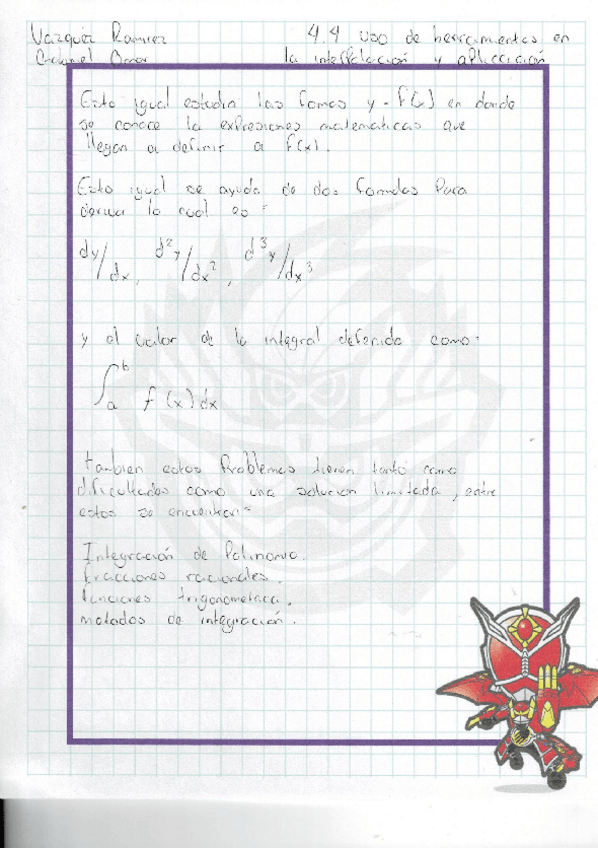 Vazquez Ramirez
4.4 uso de herramientas en
Omar
la interpolación y aplicación
Esto igual estudia las fomas y = f(x) en donde
se conoce la expresiones matematicas que
llegan a definir a f(x).
Esto igual se ayuda de dos formulas para
derivar lo cual es =
dy/dx, d²y/dx², d³y/dx³
y el valor de la integral defenida como:
∫ₐᵇ f(x)dx
tambien estos Problemas tienen tanto como
dificultades como una solucion limitada, entre
estos se encuentran =
Integración de Polinomio.
fracciones racionales.
funciones trigonometrica.
metodos de integración.